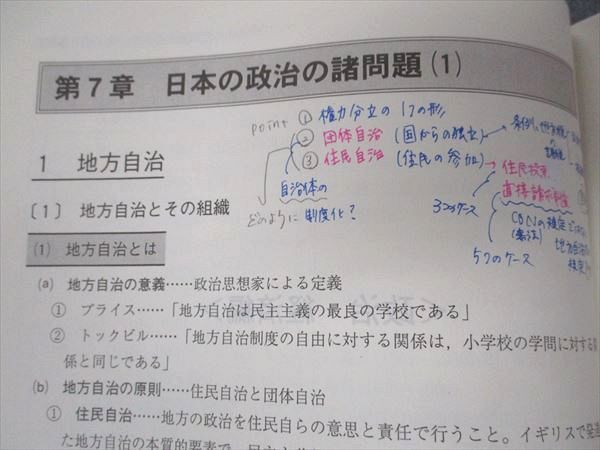 第7章 日本の政治の諸問題(1)
point ① 権力分立の1つの形
② 団体自治 (国からの独立)
③ 住民自治 (住民の参加)
住民投票
直接請求
自治体の
どのように制度化?
3つのケース
5つのケース
1 地方自治
〔1〕 地方自治とその組織
(1) 地方自治とは
(a) 地方自治の意義……政治思想家による定義
① ブライス……「地方自治は民主主義の最良の学校である」
② トックビル……「地方自治制度の自由に対する関係は,小学校の学問に対する
係と同じである」
(b) 地方自治の原則……住民自治と団体自治
① 住民自治……地方の政治を住民自らの意思と責任で行うこと。イギリスで発達
た地方自治の本質的要素で